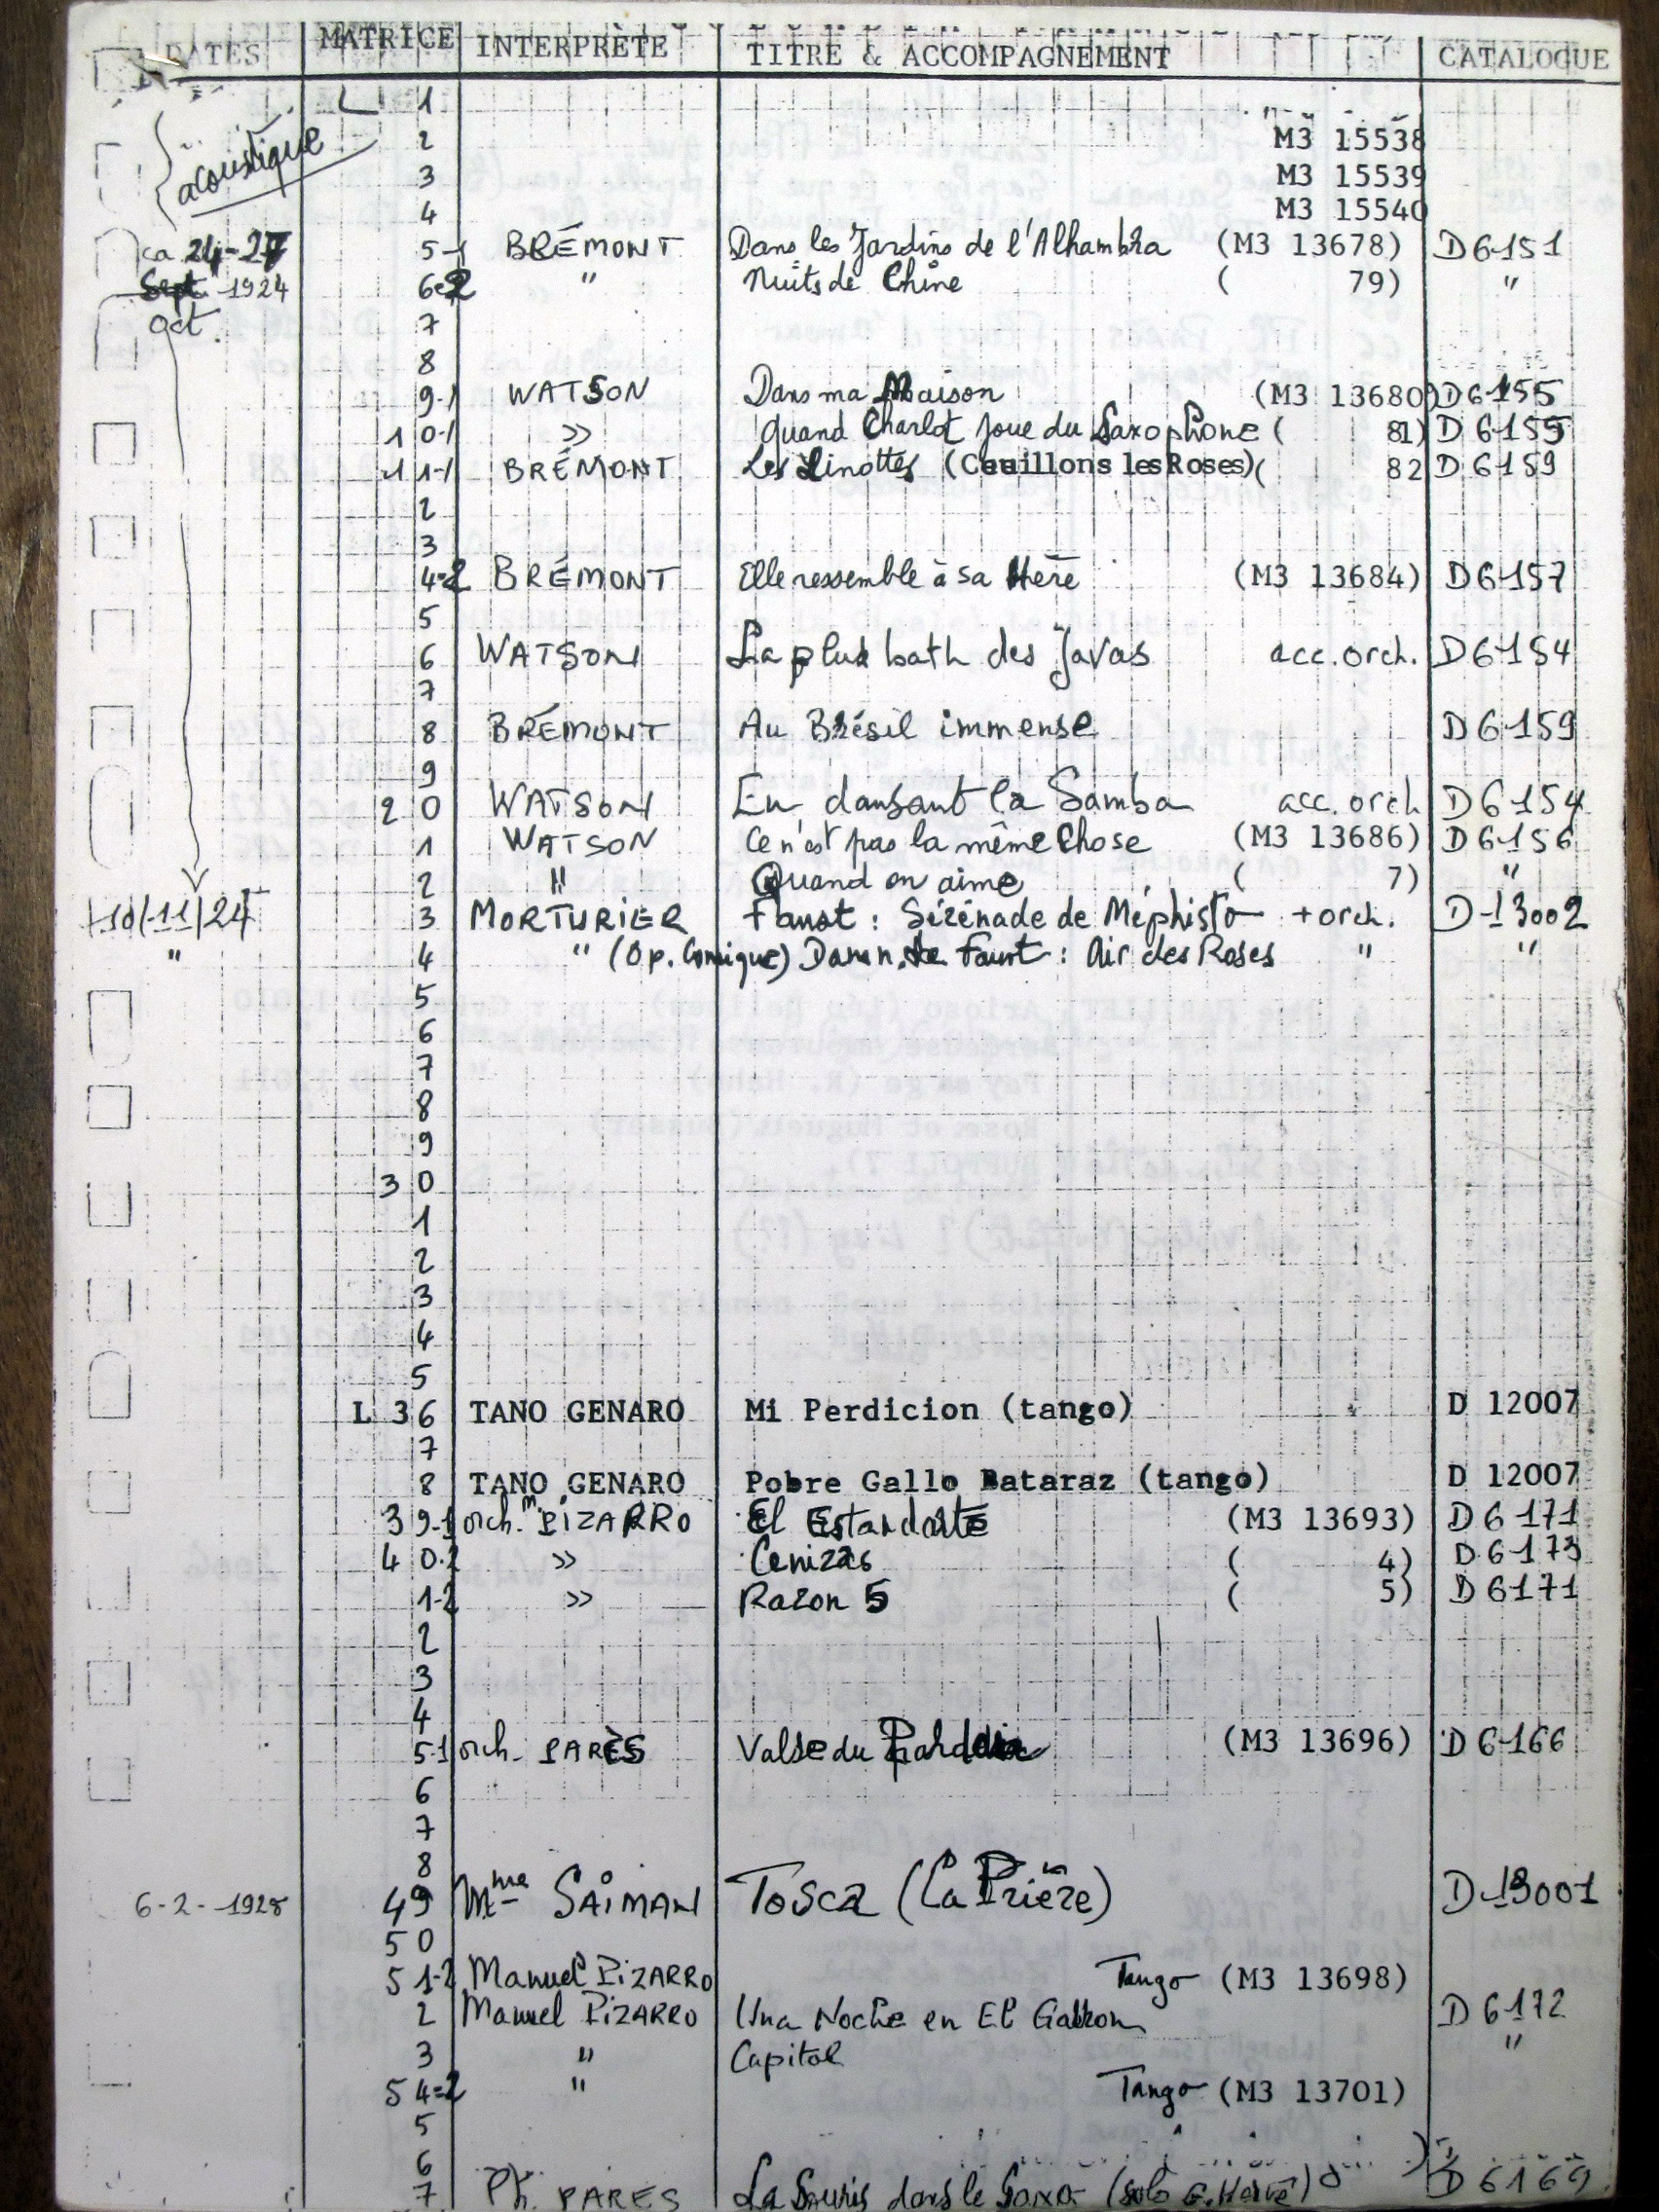 DATES MATRICE INTERPRETE TITRE & ACCOMPAGNEMENT CATALOGUE
L 1
acoustique 2 M3 15538
3 M3 15539
4 M3 15540
ca 24-27 5-1 BRÉMONT Dans les Jardins de l'Alhambra (M3 13678) D6151
Sept. 1924 6-2 " Nuits de Chine ( 79) "
oct. 7
8
9-1 WATSON Dans ma Maison (M3 13680) D6155
1 0-1 » Quand Charlot joue du Saxophone ( 81) D 6155
1 1-1 BRÉMONT Les Linottes (Cueillons les Roses)( 82 D 6159
2
3
4-2 BRÉMONT Elle ressemble à sa Mère (M3 13684) D6157
5
6 WATSON La plus bath des Javas acc.orch. D6154
7
8 BRÉMONT Au Brésil immense D6159
9
2 0 WATSON En dansant la Samba acc. orch D6154
1 WATSON Ce n'est pas la même Chose (M3 13686) D6156
2 " Quand on aime ( 7) "
10/11/24 3 MORTURIER Faust : Sérénade de Méphisto +orch. D-13002
" 4 " (Op. Comique) Damn. de Faust : Air des Roses " "
5
6
7
8
9
3 0
1
2
3
4
5
L 3 6 TANO GENARO Mi Perdicion (tango) D 12007
7
8 TANO GENARO Pobre Gallo Bataraz (tango) D 12007
3 9-1 orch. M. PIZARRO El Estandarte (M3 13693) D6171
4 0-2 » Cenizas ( 4) D.6173
1-2 » Razon 5 ( 5) D6171
2
3
4
5-1 orch. PARÈS Valse du (M3 13696) D6166
6
7
8
6-2-1925 49 Mme SAIMAN Tosca (La Prière) D-13001
5 0
5 1-2 Manuel PIZARRO Tango (M3 13698)
2 Manuel PIZARRO Una Noche en El Garron D6172
3 " Capitol "
5 4-2 " Tango (M3 13701)
5
6
7 Ph. PARES La Souris dans le Saxo (solo G. Hervé) D6169